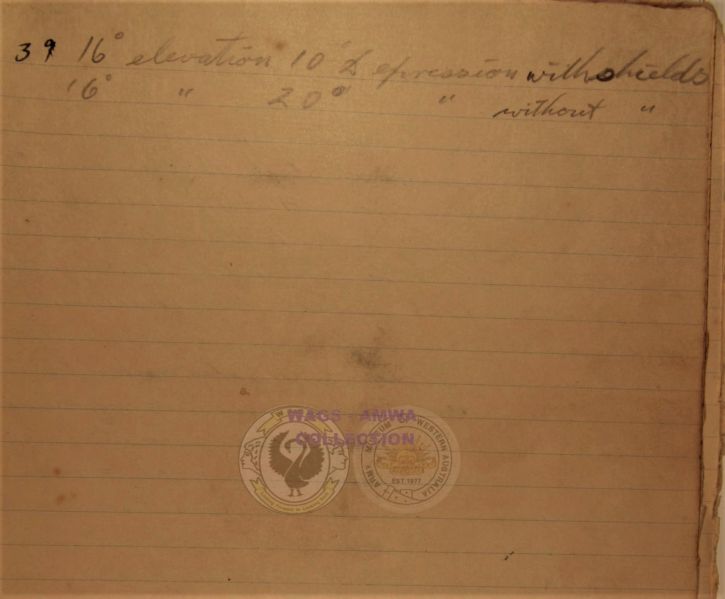 39 16° elevation 10° Depression with shields
16° " 20° " without "
WAGS - AMWA
COLLECTION
ARMY MUSEUM OF WESTERN AUSTRALIA
EST. 1977